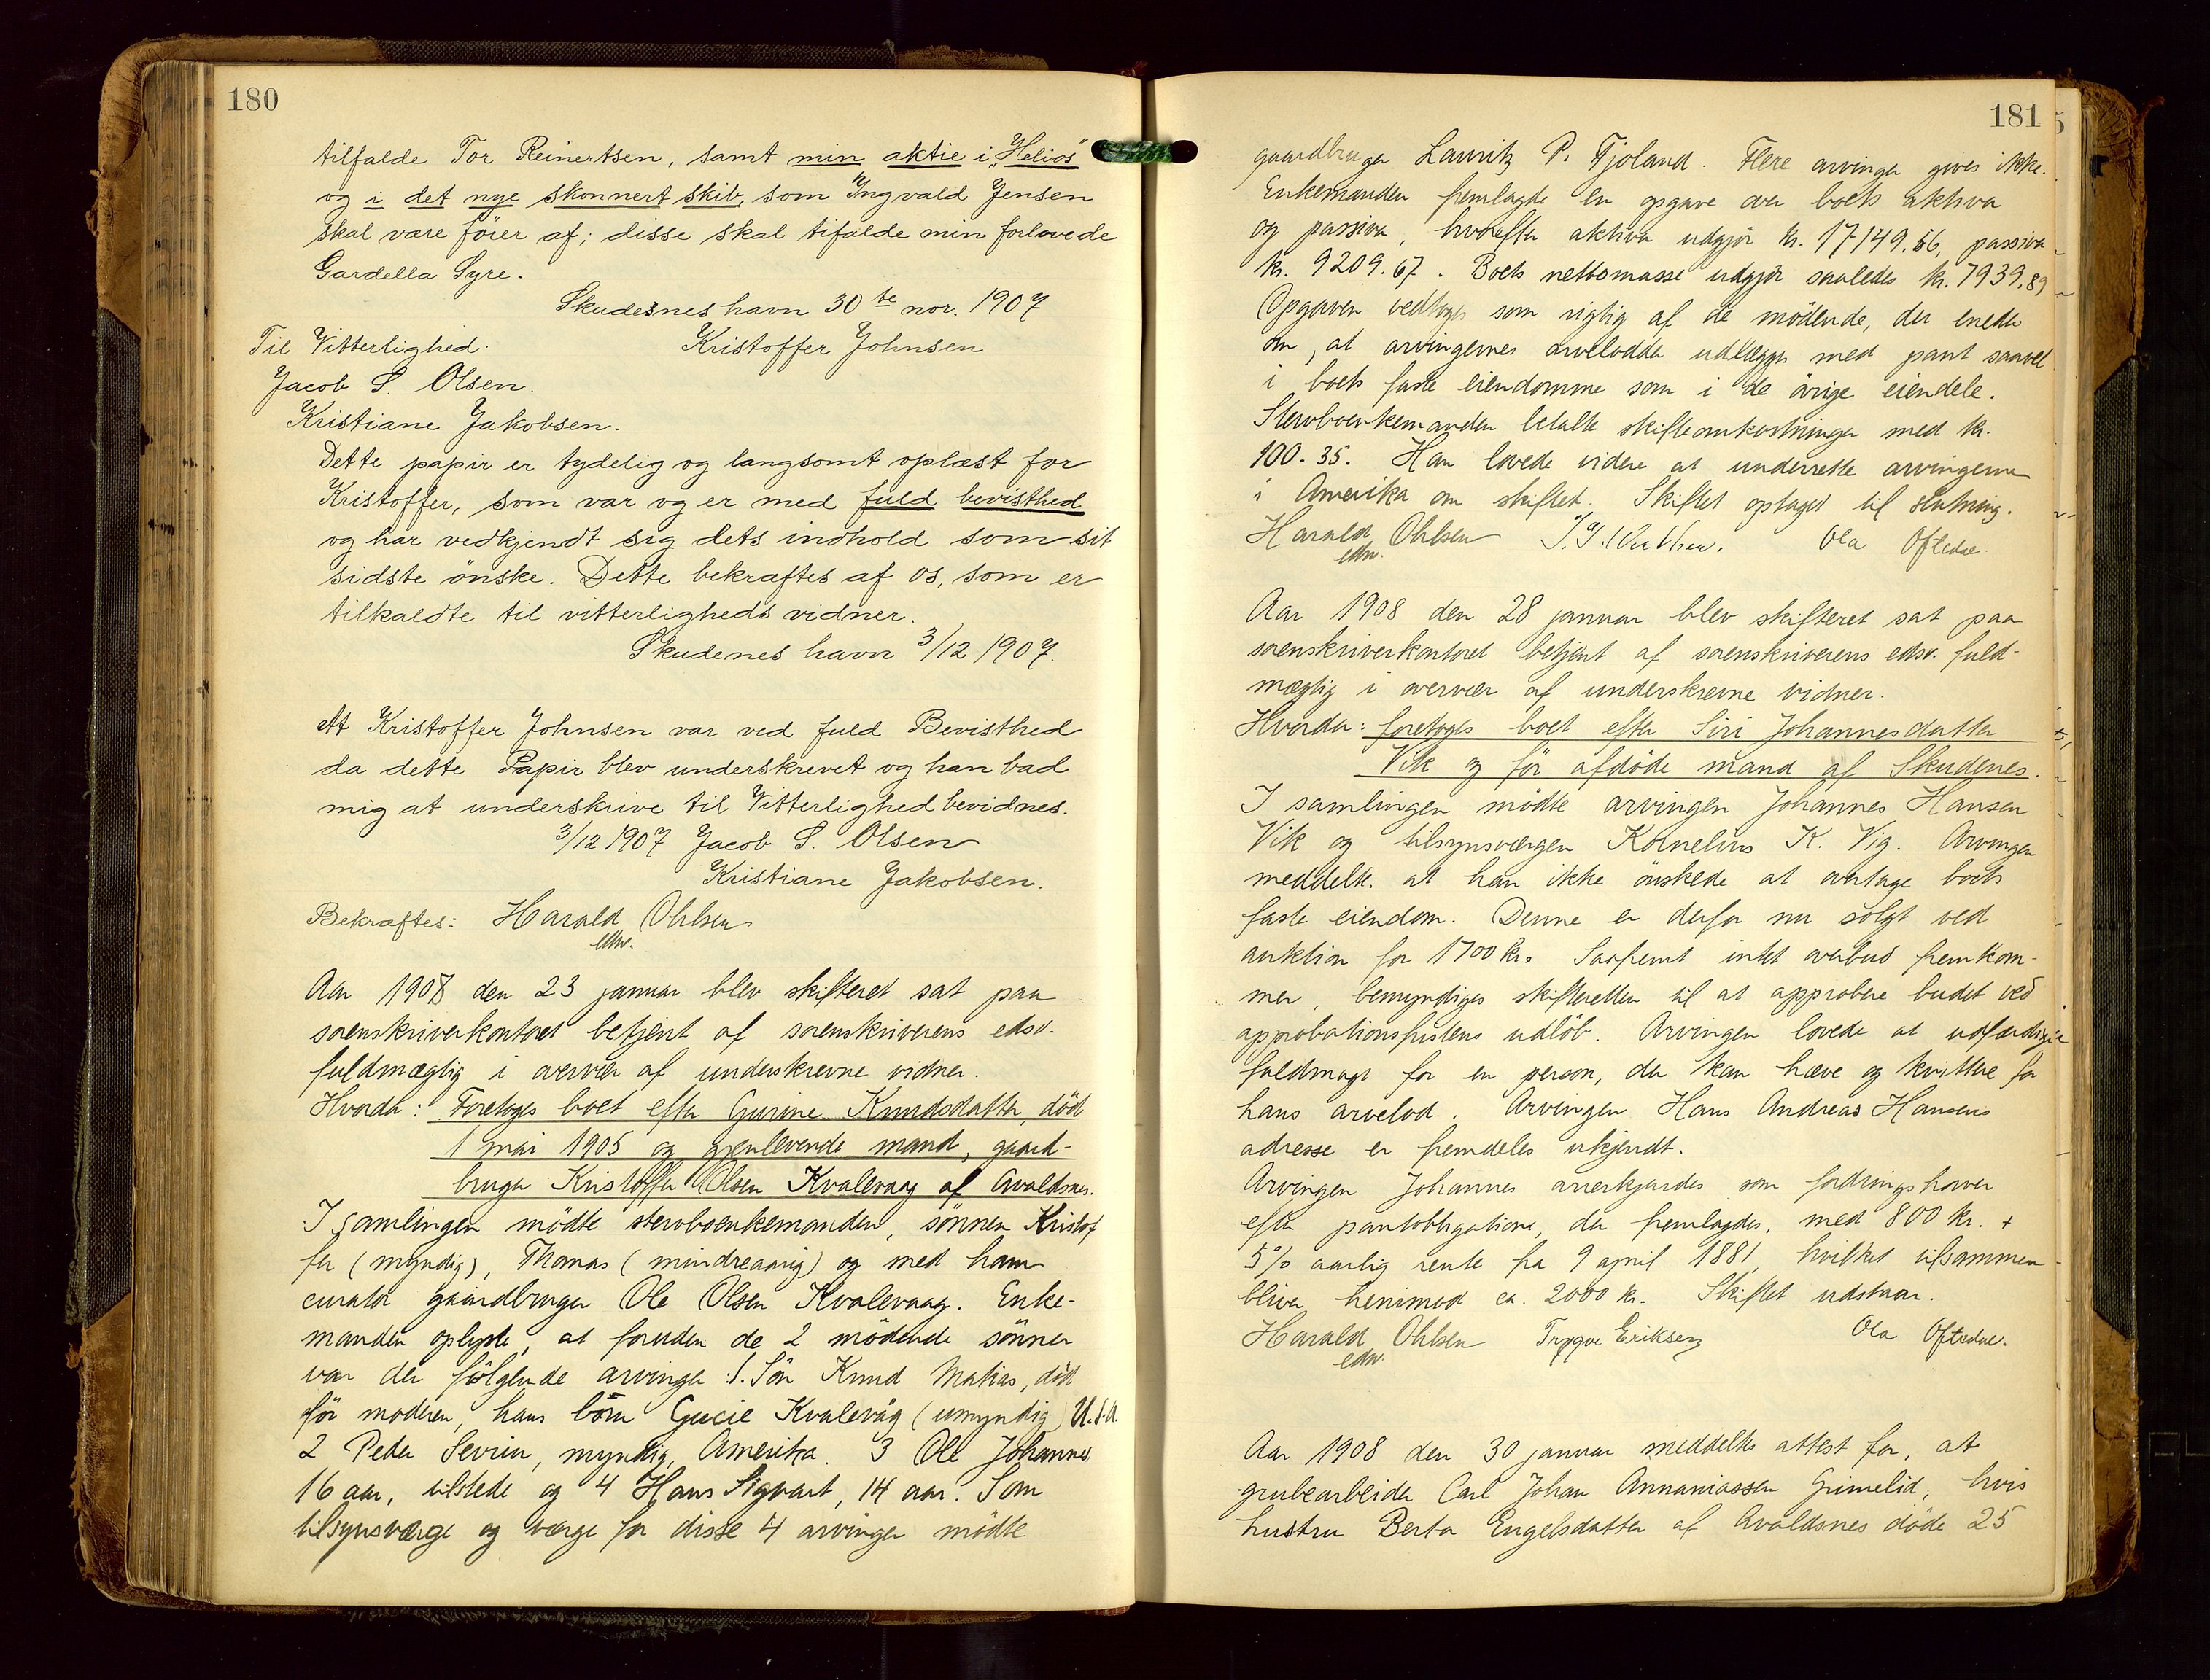 180
tilfalde Tor Reinertsen, samt min aktie i „Helios"
og i det nye skonnert skib, som Yngvald Jensen
skal være fører af; disse skal tifalde min forlovede
Gardella Syre.
Skudesneshavn 30te nov. 1907
Til Vitterlighed. Kristoffer Johnsen
Jacob S. Olsen.
Kristiane Jakobsen.
Dette papir er tydelig og langsomt oplæst for
Kristoffer, som var og er med fuld bevisthed
og har vedkjendt sig dets indhold som sit
sidste ønske. Dette bekræftes af os, som er
tilkaldte til vitterligheds vidner.
Skudenes havn 3/12 1907.
At Kristoffer Johnsen var ved fuld Bevisthed
da dette Papir blev underskrevet og han bad
mig at underskrive til Vitterlighed bevidnes.
3/12 1907 Jacob S. Olsen
Kristiane Jakobsen.
Bekræftes: Harald Ohlsen
edsv.
Aar 1908 den 23 januar blev skifteret sat paa
sorenskriverkontoret betjent af sorenskriverens edsv.
fuldmægtig i overvær af underskrevne vidner.
Hvorda: Foretoges boet efter Gurine Knudsdatter, død
1 mai 1905 og gjenlevende mand, gaard-
bruger Kristoffer Olsen Kvalevaag af Avaldsnes.
I samlingen mødte stervboenkemanden, sønnen Kristof
fer (myndig), Thomas (mindreaarig) og med ham
curator gaardbruger Ole Olsen Kvalevaag. Enke-
manden oplyste, at foruden de 2 mødende sønner
var der følgende arvinger: 1. Søn Knud Matias, død
før moderen, hans børn Gucie Kvalevåg (umyndig) U.S.A.
2 Peder Severin, myndig, Amerika. 3 Ole Johannes
16 aar, tilstede og 4 Hans Sigvart, 14 aar. Som
tilsynsværge og værge for disse 4 arvinger mødte
181
gaardbruger Lauritz P. Fjoland. Flere arvinger gives ikke.
Enkemanden fremlagde en opgave over boets aktiva
og passiva, hvorefter aktiva udgjør kr. 17149.56, passiva
kr. 9209.67. Boets nettomasse udgjør saaledes kr. 7939.89
Opgaven vedtoges som rigtig af de mødende, der enedes
om, at arvingernes arvelodder udlægges med pant saavel
i boets faste eiendomme som i de øvrige eiendele.
Stervboenkemanden betalte skifteomkostninger med kr.
100.35. Han lovede videre at underrette arvingerne
i Amerika om skiftet. Skiftet optaget til slutning.
Harald Ohlsen Ola Oftedal.
edsv.
Aar 1908 den 28 januar blev skifteret sat paa
sorenskriverkontoret betjent af sorenskriverens edsv. fuld-
mægtig i overvær af underskrevne vidner.
Hvorda: foretoges boet efter Siri Johannesdatter
Vik og før afdøde mand af Skudenes.
I samlingen mødte arvingen Johannes Hansen
Vik og tilsynsværgen Kornelius K. Vig. Arvingen
meddelte, at han ikke ønskede at overtage boets
faste eiendom. Denne er derfor nu solgt ved
auktion for 1700 kr. Saafremt intet overbud fremkom-
mer, bemyndiges skifteretten til at approbere budet ved
approbationsfristens udløb. Arvingen lovede at udfærdige
fuldmagt for en person, der kan hæve og kvittere for
hans arvelod. Arvingen Hans Andreas Hansens
adresse er fremdeles ukjendt.
Arvingen Johannes anerkjendes som fordringshaver
efter pantobligationer, der fremlagdes, med 800 kr. +
5% aarlig rente fra 9 april 1881, hvilket tilsammen
bliver henimod ca. 2000 kr. Skiftet udstaar.
Harald Ohlsen Trygve Eriksen Ola Oftedal.
edsv.
Aar 1908 den 30 januar meddeltes attest for, at
grubearbeider Carl Johan Annaniassen Grimelid, hvis
hustru Berta Engelsdatter af Avaldsnes døde 25